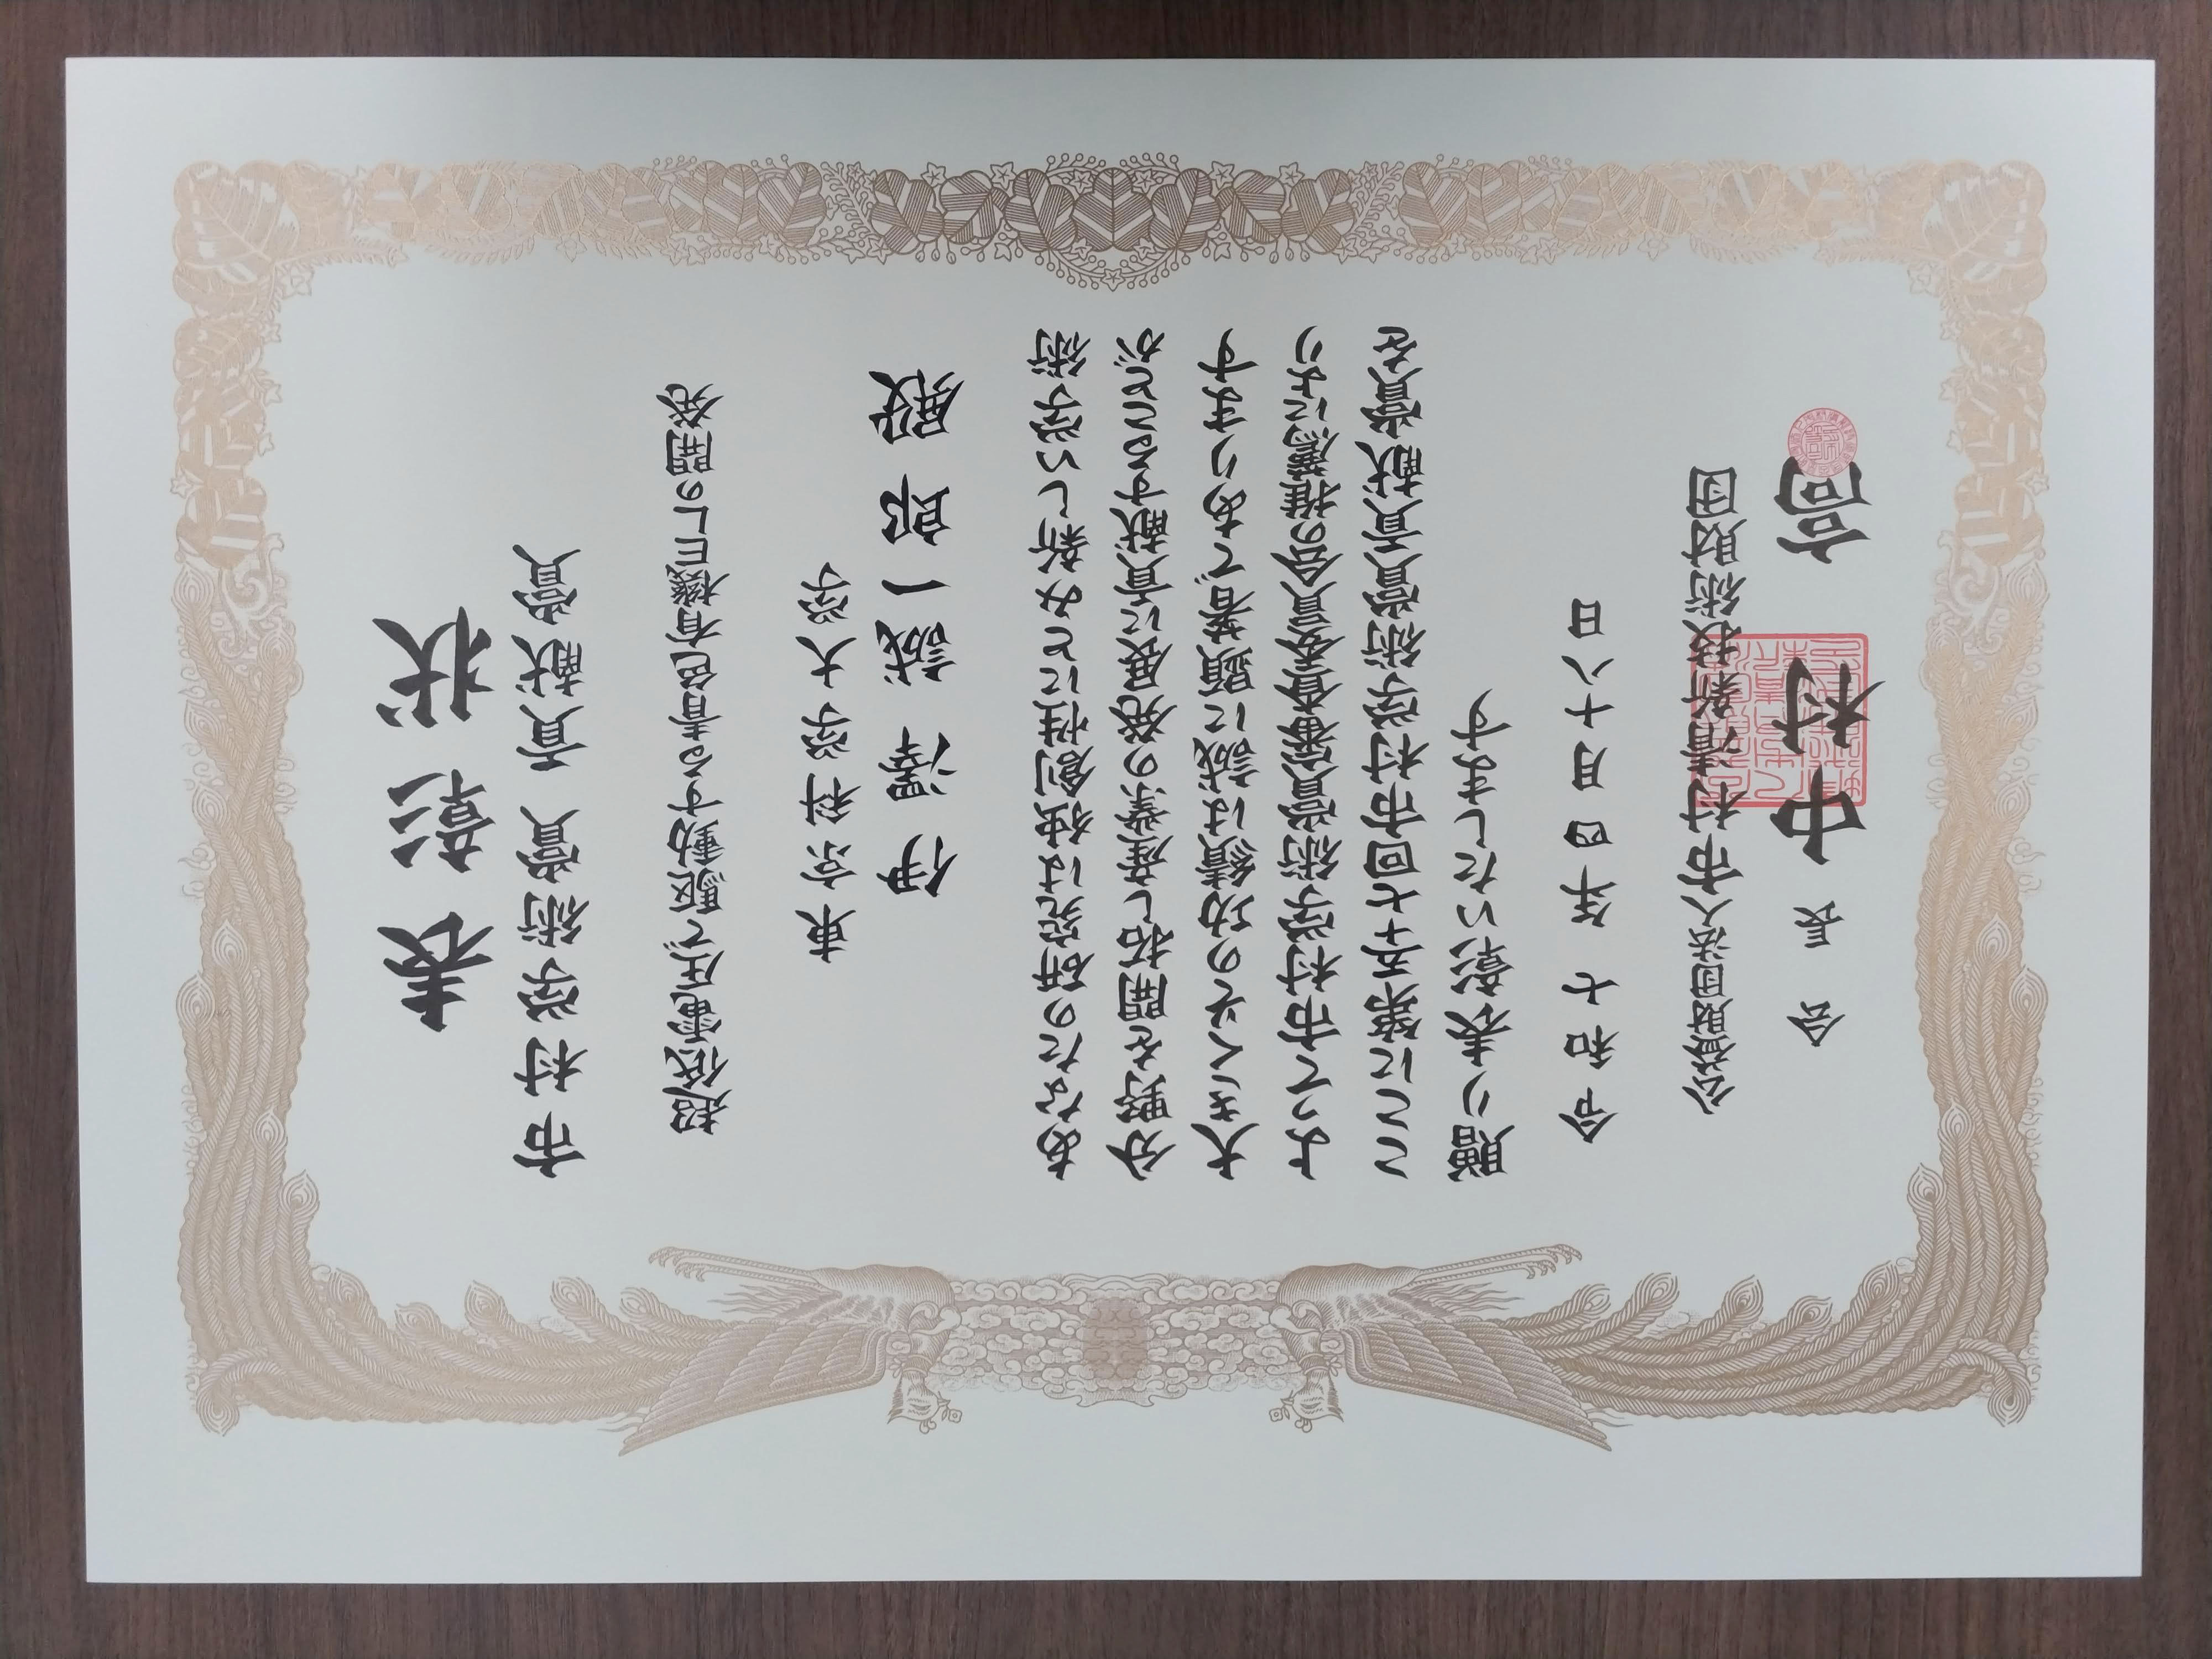 表彰状
市村学術賞 貢献賞
超低電圧で駆動する青色有機ELの開発
東京科学大学
伊澤誠一郎殿
あなたの研究は独創性にとみ新しい学術
分野を開拓し産業の発展に貢献することが
大きくその功績は誠に顕著であります
よって市村学術賞審査委員会の推薦により
ここに第五十七回市村学術賞貢献賞を
贈り表彰いたします
令和七年四月十八日
公益財団法人市村清新技術財団
会長 中村高